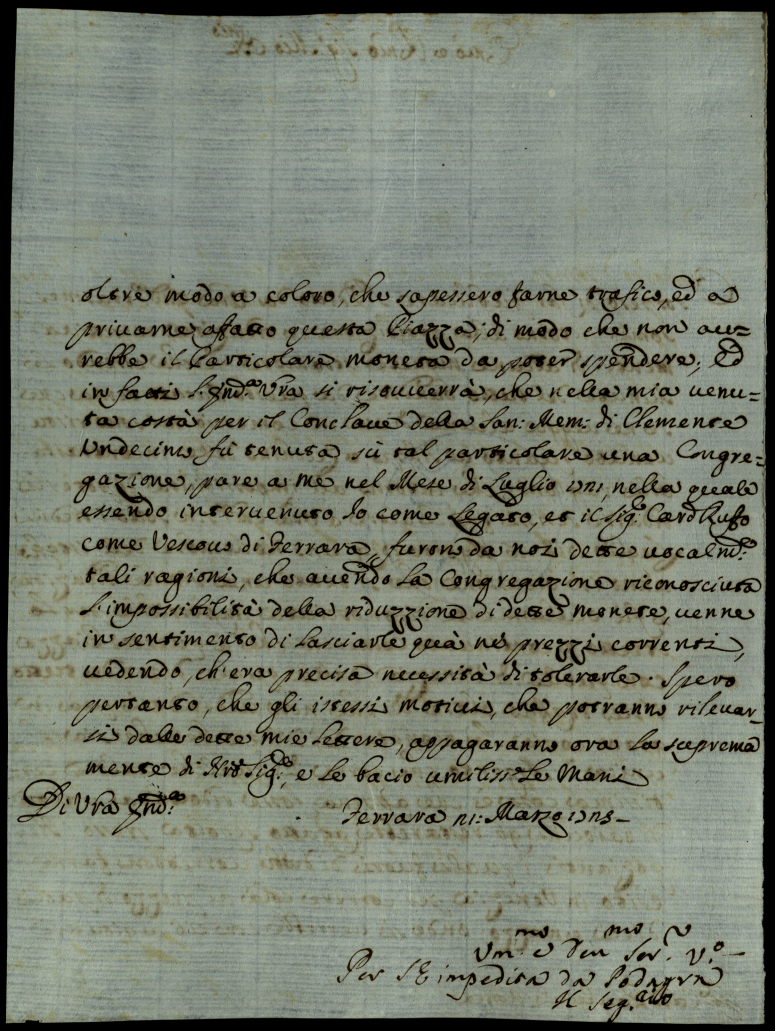 oltre modo a coloro, che sapessero farne trafico, ed a
privarne affatto questa Piazza; di modo che non av=
rebbe il Particolare moneta da poter spendere; Ed
in fatti l'Em:ᵃ Vra si risouverrà, che nella mia venu=
ta costà per il Conclave della San: Mem: di Clemente
Undecimo fù tenuta sù tal particolare una Congre=
gazione, pare a me nel Mese di Luglio 1721, nella quale
essendo intervenuto Io come Legato, et il Sig:ʳ Card Ruffo
come Vescovo di Ferrara, furon da noi dette vocalmᵉ:
tali ragioni, che avendo la Congregazione riconosciuta
l'impossibilità della riduzzione di dette monete, venne
in sentimento di lasciarle quà ne' prezzi correnti,
vedendo, ch'era precisa necessità di tolerarle. Spero
pertanto, che gli istessi motivi, che potranno rilevar=
si dalle dette mie lettere, appagaranno ora la suprema
mente di Sigʳᵉ:, e le bacio umilissᵉ: le Mani
Di Vra Em:ᵃ
Ferrara Marzo
Umᵐᵒ e Devᵐᵒ Serʳ: Vº:
Per S E impedita da Podagra
Il Seg:ʳⁱᵒ